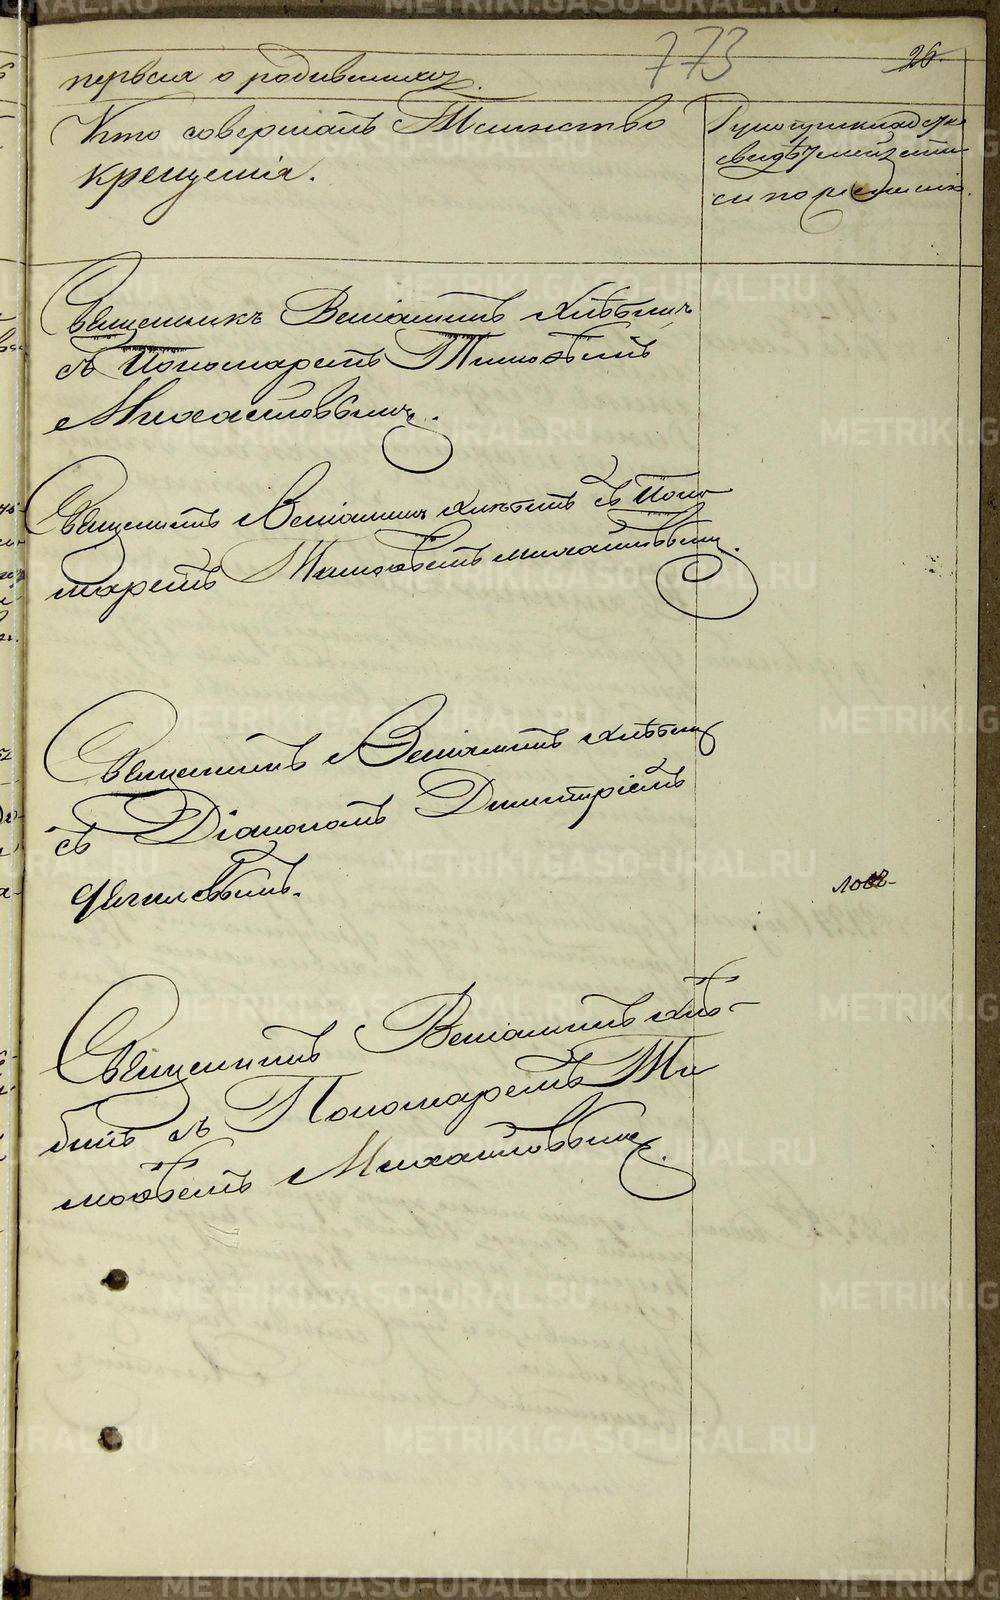 773
26.
первая о родившихся.
Кто совершалъ Таинство
крещенія.
Рукоприкладство
свидѣтелей записи
по желанію.
Священникъ Веніаминъ Хлѣбинъ
съ Пономаремъ Тимоѳѣемъ
Михайловымъ.
Священникъ Веніаминъ Хлѣбинъ съ Поно
маремъ Тимоѳѣемъ Михайловымъ.
Священникъ Веніаминъ Хлѣбинъ
съ Діакономъ Димитріемъ
Священникъ Веніаминъ Хлѣ-
бинъ съ Пономаремъ Ти
моѳѣемъ Михайловымъ.
METRIKI.GASO-URAL.RU